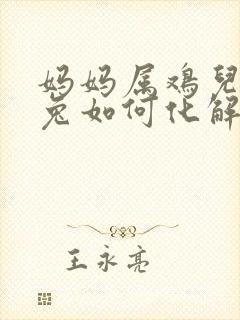 妈妈属鸡儿
兔如何化解
王永亮